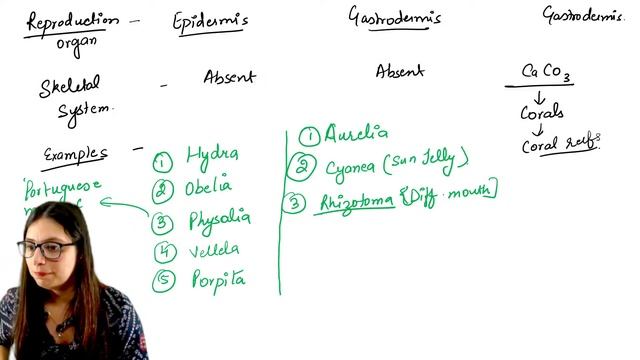 Reproduction - Epidermis Gastrodermis Gastrodermis.
organ
Skeletal - Absent Absent CaCO3
System. ↓
Corals
↓
Coral reefs
Examples -
① Hydra
② Obelia
③ Physalia
④ Vellela
⑤ Porpita
Portuguese
① Aurelia
② Cyanea (Sun Jelly)
③ Rhizotoma {Diff. mouth]